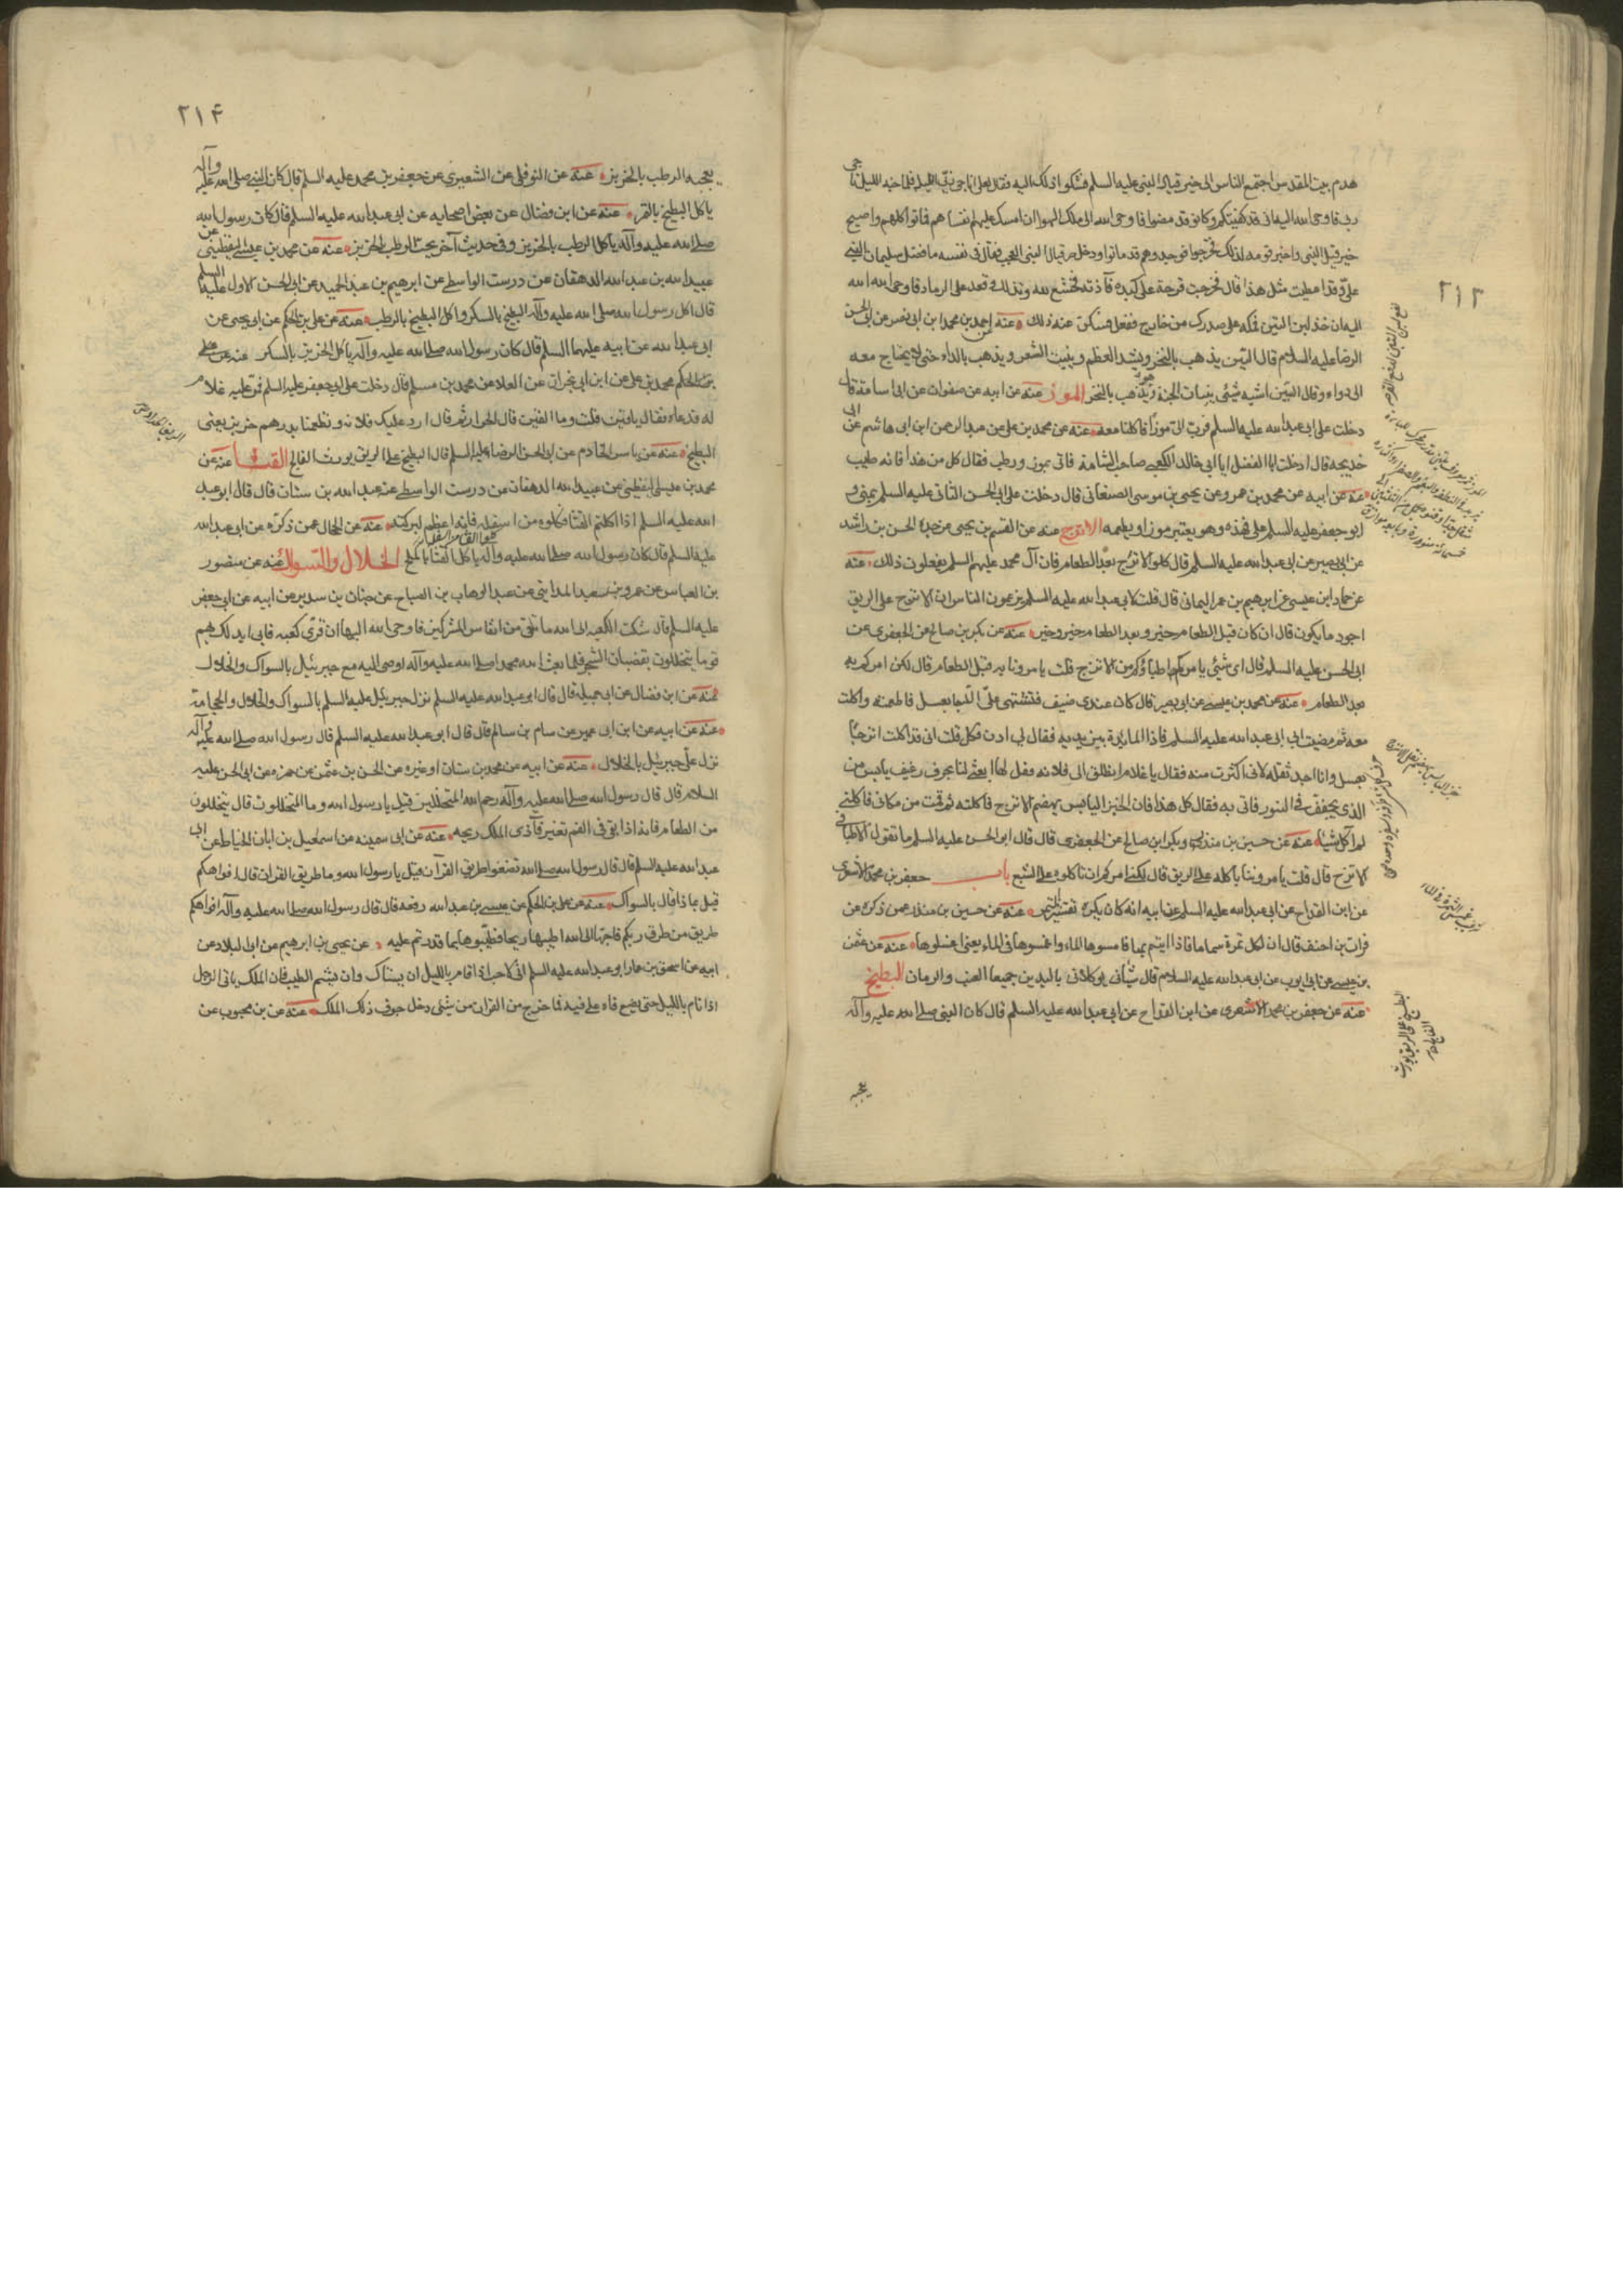 ٢١٣
هدم بيت المقدس اجتمع الناس الى حزقيل النبى عليه السلم فشكوا ذلك اليه فقال لعلى اناجى ربى الليلة فلما جنه الليل ناجى
ربه فاوحى الله اليه انى قد كفيتكم وكانو قد مضوا فاوحى الله الى ملك الهوا ان امسك عليهم انفاسهم فماتوا كلهم واصبح
حزقيل النبى واخبر قومه بذلك فخرجوا فوجدوهم قد ماتوا ودخل حزقيال النبى العجب فقال فى نفسه ما فضل سليمان النبى
على وقد اعطيت مثل هذا قال فخرجت قرحة على كبده فآذته فخشع لله وتذلل وقعد على الرماد فاوحى الله
اليه ان خذ لبن التين فحكه على صدرك من خارج ففعل فسكن عنه ذلك عنه عن احمد بن محمد ابن ابى نصر عن ابى الحسن
الرضا عليه السلام قال التين يذهب بالبخر ويشد العظم وينبت الشعر ويذهب بالداء حتى لا يحتاج معه
الى دواء وقال التين اشبه شىء بنبات الجنة وهو يذهب بالبخر الموز عنه عن ابيه عن صفوان عن ابى اسامة قال
دخلت على ابى عبد الله عليه السلم فقرب الى موزا فاكلنا معه عنه عن محمد بن على عن عبد الرحمن ابن ابى هاشم عن ابى
خديجه قال دخلت انا والمفضل ابى خالد الكعبى صاحب الشامة فاتى بموز ورطب فقال كل من هذا فانه طيب
عنه عن ابيه عن محمد بن عمرو عن يحيى بن موسى الصنعانى قال دخلت على ابى الحسن الثانى عليه السلم بمنى و
ابو جعفر عليه السلم على فخذه وهو يقشر موزا ويطعمه الاترج عنه عن القسم بن يحيى عن جده الحسن بن راشد
عن ابى بصير عن ابى عبد الله عليه السلم قال كلوا الاترج بعد الطعام فان آل محمد عليهم السلم يفعلون ذلك عنه
عن حماد ابن عيسى عن ابرهيم بن عمر اليمانى قال قلت لابى عبد الله عليه السلم يزعمون الناس ان الاترج على الريق
اجود ما يكون قال ان كان قبل الطعام خير وبعد الطعام خير وخير عنه عن بكر بن صالح عن الجعفرى عن
ابى الحسن عليه السلم قال اى شىء يامركم اطباؤكم من الاترج قلت يامرونا به قبل الطعام قال لكن امركم به
بعد الطعام عنه عن محمد بن عيسى عن ابى بصير قال كان عندى ضيف فتشهى على اترجا بعسل فاطعمته واكلت
معه ثم مضيت الى ابى عبد الله عليه السلم فاذا المايدة بين يديه فقال لى ادن فكل قلت انى قد اكلت اترجا
بعسل وانا اجد ثقله لانى اكثرت منه فقال يا غلام انطلق الى فلانه فقل لها ابعثى لنا بحرف رغيف يابس من
الذى يجفف فى التنور فاتى به فقال كل هذا فان الخبز اليابس يهضم الاترج فاكلته ثم قمت من مكانى فكانى
لم آكل شيئا عنه عن حسين بن منذر وبكر ابن صالح عن الجعفرى قال قال ابو الحسن عليه السلم ما تقول الاطباء فى
الاترج قال قلت يامروننا باكله على الريق قال لكنى امركم ان تاكلوه على الشبع باب جعفر بن محمد الاشعرى
عن ابن القداح عن ابى عبد الله عليه السلم عن ابيه انه كان يكره تقشير الثمرة عنه عن حسين بن منذر عمن ذكره عن
فرات بن احنف قال ان لكل ثمرة سماما فاذا اتيتم بها فامسوها الماء واغمسوها فى الماء يعنى اغسلوها عنه عن عثمن
بن عيسى عن ابى ايوب عن ابى عبد الله عليه السلام قال شيأنى يوكلانى باليدين جميعا العنب والرمان البطيخ
عنه عن جعفر بن محمد الاشعرى عن ابن القداح عن ابى عبد الله عليه السلم قال كان النبى صلى الله عليه وآله
يعجبه
٢١٤
يعجبه الرطب بالخربز عنه عن النوفلى عن الشعيرى عن جعفر بن محمد عليه السلم قال كان النبى صلى الله عليه وآله
ياكل البطيخ بالتمر عنه عن ابن فضال عن بعض اصحابه عن ابى عبد الله عليه السلم قال كان رسول الله
صلى الله عليه وآله ياكل الرطب بالخربز وفى حديث آخر يحب الرطب بالخربز عنه عن محمد بن عيسى اليقطينى عن
عبيد الله بن عبد الله الدهقان عن درست الواسطى عن ابرهيم بن عبد الحميد عن ابى الحسن الاول عليه السلم
قال اكل رسول الله صلى الله عليه وآله البطيخ بالسكر واكل البطيخ بالرطب عنه عن على بن الحكم عن ابى يحيى عن
ابى عبد الله عن ابيه عليهما السلم قال كان رسول الله صلى الله عليه وآله ياكل الخربز بالسكر عنه عن على
بن الحكم محمد بن على عن ابن ابى نجران عن العلا عن محمد بن مسلم قال دخلت على ابى جعفر عليه السلم فمر عليه غلام
له فدعاه فقال يا قين قلت وما القين قال الحداد ثم قال ارد عليك فلانه وتطعمنا بدرهم خربز يعنى
البطيخ عنه عن ياسر الخادم عن ابى الحسن الرضا عليه السلم قال البطيخ على الريق يورث الفالج القثا عنه عن
محمد بن عيسى اليقطينى عن عبيد الله الدهقان عن درست الواسطى عن عبد الله بن سنان قال قال ابو عبد
الله عليه السلم اذا اكلتم القثا فكلوه من اسفله فانه اعظم لبركته عنه عن الحجال عمن ذكره عن ابى عبد الله
عليه السلم قال كان رسول الله صلى الله عليه وآله ياكل القثا بالملح الخلال والسواك عنه عن منصور
بن العباس عن عمرو بن سعيد المداينى عن عبد الوهاب بن الصباح عن حنان بن سدير عن ابيه عن ابى جعفر
عليه السلم قال شكت الكعبه الى الله ما تلقى من انفاس المشركين فاوحى الله اليها ان قرى كعبه فانى ابدلك بهم
قوما يتخللون بقضبان الشجر فلما بعث الله محمدا صلى الله عليه وآله اوحى اليه مع جبرئيل بالسواك والخلال
عنه عن ابن فضال عن ابى جميله قال قال ابو عبد الله عليه السلم نزل جبرئيل عليه السلم بالسواك والخلال والحجامة
عنه عن ابيه عن ابن ابى عمير عن سام بن سالم قال قال ابو عبد الله عليه السلم قال رسول الله صلى الله عليه وآله
نزل على جبرئيل بالخلال عنه عن ابيه عن محمد بن سنان او غيره عن الحسن بن عثمن عن حمزه عن ابى الحسن عليه
السلام قال قال رسول الله صلى الله عليه وآله رحم الله المتخللين قيل يا رسول الله وما المتخللون قال يتخللون
من الطعام فانه اذا بقى فى الفم تغير فآذى الملك ريحه عنه عن ابى سمينه عن اسمعيل بن ابان الخياط عن ابى
عبد الله عليه السلم قال قال رسول الله صلى الله نضفوا طريق القرآن قيل يا رسول الله وما طريق القران قال افواهكم
قيل بماذا قال بالسواك عنه عن على بن الحكم عن عيسى بن عبد الله رفعه قال قال رسول الله صلى الله عليه وآله افواهكم
طريق من طرق ربكم فاحبها الى الله اطيبها ريحا فطيبوها بما قدرتم عليه عن يحيى بن ابرهيم عن ابى البلاد عن
ابيه عن اسحق بن عمار ابو عبد الله عليه السلم انى لاحب اذا قام بالليل ان يستاك وان يشم الطيب فان الملك ياتى الرجل
اذا قام بالليل حتى يضع فاه على فيه فما خرج من القران من شىء دخل جوف ذلك الملك عنه عن بن محبوب عن